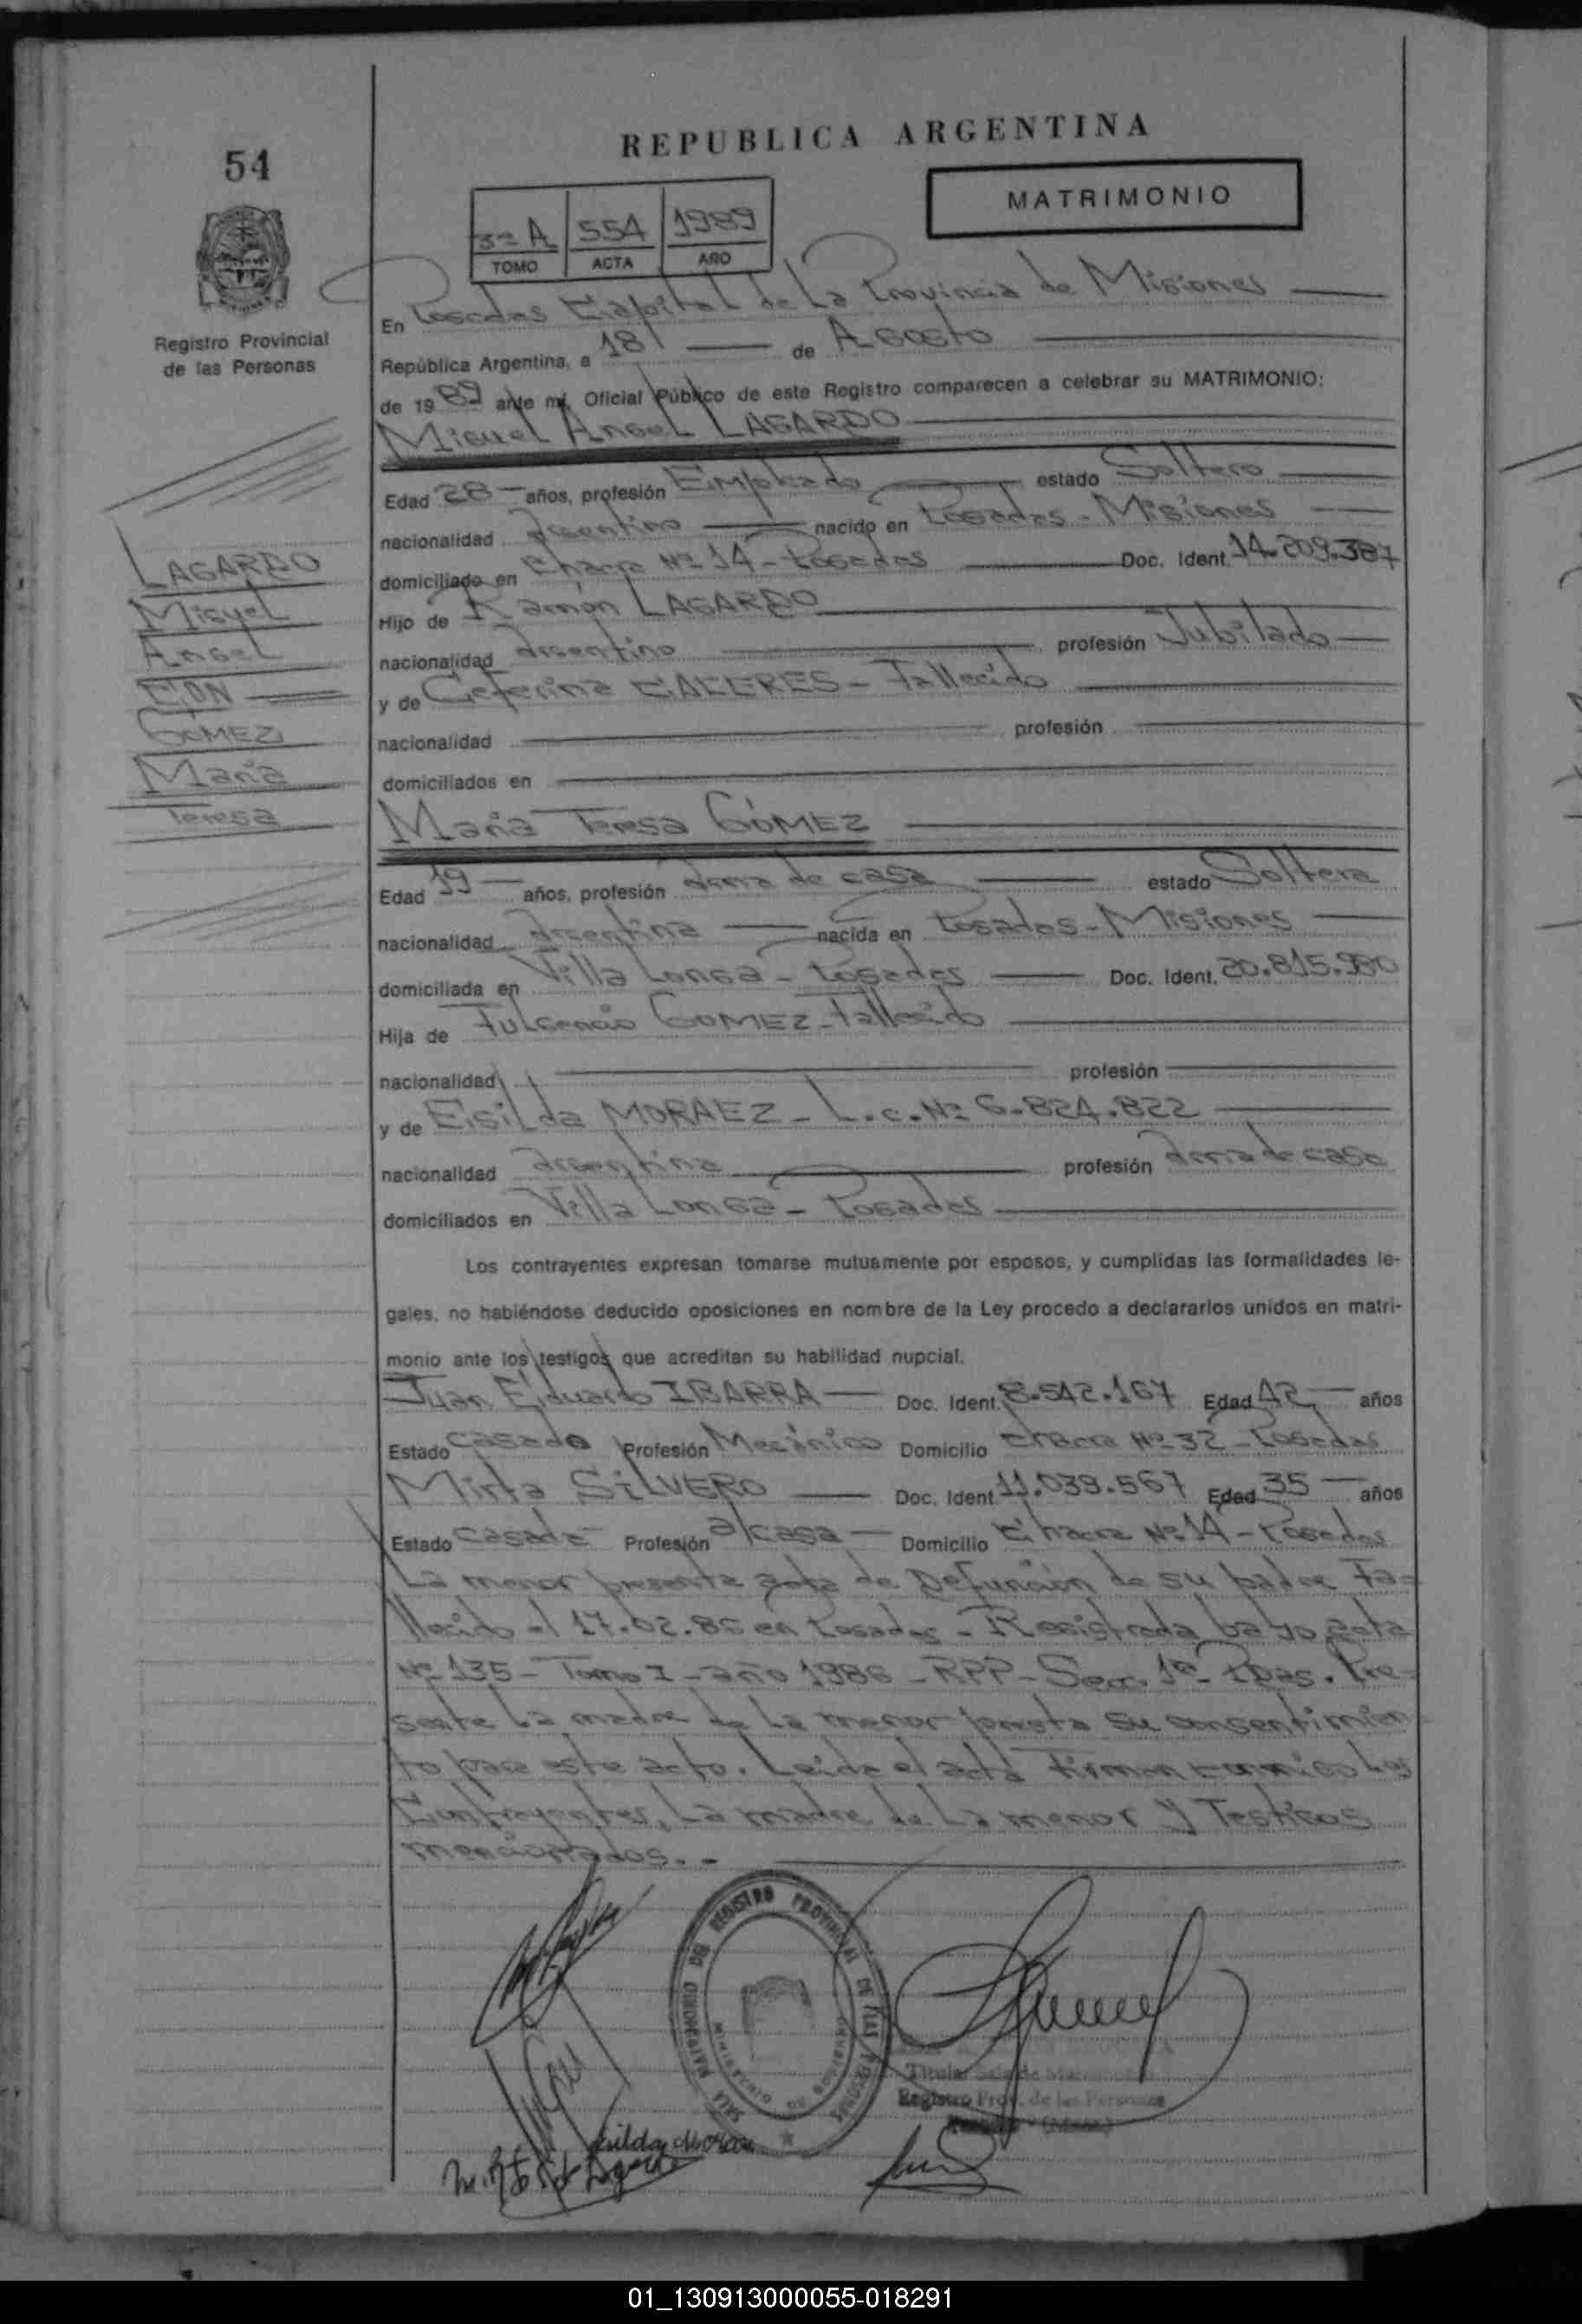 54
REPUBLICA ARGENTINA
MATRIMONIO
3º A 554 1989
TOMO ACTA AÑO
Registro Provincial
de las Personas
En Posadas Capital de La Provincia de Misiones
República Argentina, a 18 de Agosto
de 1989 ante mí, Oficial Público de este Registro comparecen a celebrar su MATRIMONIO:
Miguel Angel LAGARDO
Edad 28 años, profesión Empleado estado Soltero
nacionalidad argentino nacido en Posadas - Misiones
domiciliado en Chacra Nº 14 - Posadas Doc. Ident. 14.209.387
Hijo de Ramón LAGARDO
nacionalidad argentino profesión Jubilado
y de Ceferina CACERES - Fallecido
nacionalidad profesión
domiciliados en
LAGARDO
Miguel
Angel
CON
GOMEZ
María
Teresa
María Teresa GÓMEZ
Edad 19 años, profesión ama de casa estado Soltera
nacionalidad argentina nacida en Posadas - Misiones
domiciliada en Villa Longa - Posadas Doc. Ident. 20.815.980
Hija de Fulgencio GOMEZ - Fallecido
nacionalidad profesión
y de MORAEZ - L.c. Nº 6.824.822
nacionalidad argentina profesión ama de casa
domiciliados en Villa Longa - Posadas
Los contrayentes expresan tomarse mutuamente por esposos, y cumplidas las formalidades le-
gales, no habiéndose deducido oposiciones en nombre de la Ley procedo a declararlos unidos en matri-
monio ante los testigos que acreditan su habilidad nupcial.
Juan Eduardo IBARRA Doc. Ident. 8.542.167 Edad 42 años
Estado casado Profesión Mecánico Domicilio Chacra Nº 32 - Posadas
Mirta SILVERO Doc. Ident. 11.039.567 Edad 35 años
Estado casada Profesión a/casa Domicilio Chacra Nº 14 - Posadas
La menor presenta acta de Defunción de su padre Fa-
llecido el 17.02.86 en Posadas - Registrada bajo acta
Nº 135 - Tomo I - año 1986 - RPP - Secc. 1ª - Pdas. Pre-
sente La madre de La menor presta su consentimien
to para este acto. Leida el acta Firman conmigo Los
Contrayentes, La madre de La menor y Testigos
mencionados. -
SALA MATRIMONIO DE REGISTRO PROVINCIAL DE LAS PERSONAS
Titular Sala de Matrimonios
Registro Prov. de las Personas
01_130913000055-018291